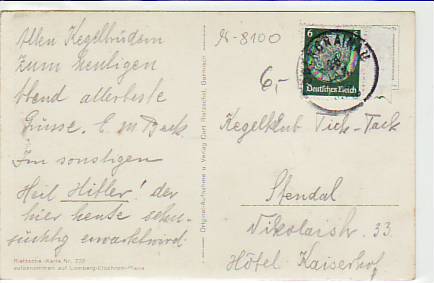 Allen Kegelbrüdern
zum heutigen
Abend allerbeste
Grüsse. E. M. Beck
Im sonstigen
Heil Hitler! der
hier heute sehn-
süchtig erwartet wird.
Rietzsche-Karte Nr. 220
aufgenommen auf
Original-Aufnahme u. Verlag Curt Rietzschel, Garmisch
8100
6
Deutsches Reich
6,-
Kegelklub Tick-Tack
Stendal
Nikolaistr. 33
Hôtel Kaiserhof